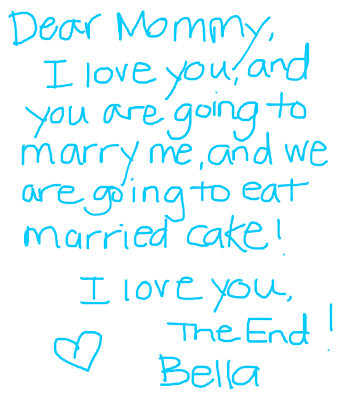 Dear Mommy,
I love you, and
you are going to
marry me, and we
are going to eat
married cake!
I love you,
The End!
Bella